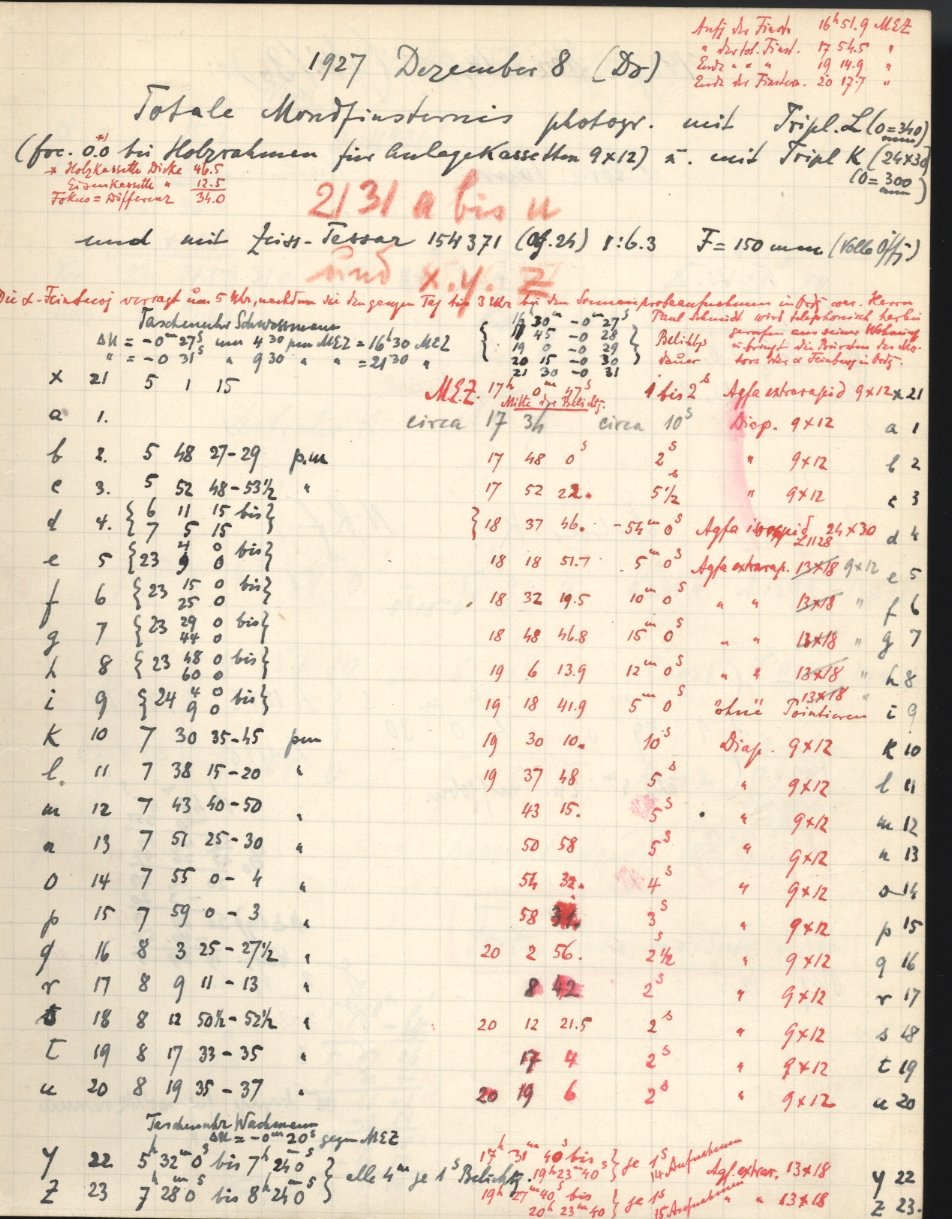 Anfg der Finst. 16ʰ 51.9 MEZ
" der tot. Finst. 17 54.5 "
Ende " " " 19 14.9 "
Ende der Finstern. 20 17.7 "
1927 Dezember 8 (Do)
Totale Mondfinsternis photogr. mit Tripl. L (O=340 mm)
(foc. 0.0 *) bei Holzrahmen für Anlagekassetten 9×12) u. mit Tripl K (24×30)
(O=300 mm)
* Holzkassette Dicke 46.5
Eisenkassette " 12.5
Fokus=Differenz 34.0
2131 a bis u
und mit Zeiss-Tessar 154371 (Of. 24) 1:6.3 F=150 mm (volle Öffg)
und x. y. z
Die α-Feinbewg versagt um 5 Uhr, nachdem sie den ganzen Tag bis 3 Uhr bei den Sonnenprobeaufnahmen in Ordg war. Herrn
Paul Schmidt wird telephonisch herbei
gerufen aus seiner Wohnung
u. bringt die Bürsten des Mo-
tors der α Feinbewg in Ordg.
Taschenuhr Schwassmann
ΔU = -0ᵐ 27ˢ um 4 30 pm MEZ = 16ʰ 30 MEZ
" = -0 31ˢ " 9 30 " " = 21 30 "
{ 16ʰ 30ᵐ -0ᵐ 27ˢ }
{ 17 45 -0 28 }
{ 19 0 -0 29 }
{ 20 15 -0 30 }
{ 21 30 -0 31 }
Belichtgs
dauer
x 21 5 1 15 M.E.Z. 17ʰ 0ᵐ 47ˢ 1 bis 2ˢ Agfa extrarapid 9×12 x 21
Mitte der Belichtg.
a 1. circa 17 34 circa 10ˢ Diap. 9×12 a 1
b 2. 5 48 27-29 p.m 17 48 0ˢ 2ˢ " 9×12 b 2
c 3. 5 52 48-53½ " 17 52 22. 5½ˢ " 9×12 c 3
d 4. { 6 11 15 bis } { 7 5 15 } } 18 37 46. -54ᵐ 0ˢ Agfa 24×30 d 4
Z1128
e 5 { 23 4 0 bis } { 9 0 } 18 18 51.7 5ᵐ 0ˢ Agfa extrarap. 13×18 9×12 e 5
f 6 { 23 15 0 bis } { 25 0 } 18 32 19.5 10ᵐ 0ˢ " " 13×18 " f 6
g 7 { 23 29 0 bis } { 44 0 } 18 48 46.8 15ᵐ 0ˢ " " 13×18 " g 7
h 8 { 23 48 0 bis } { 60 0 } 19 6 13.9 12ᵐ 0ˢ " " 13×18 " h 8
i 9 { 24 4 0 bis } { 9 0 } 19 18 41.9 5ᵐ 0ˢ 13×18 " "ohne" Pointieren i 9
K 10 7 30 35-45 pm 19 30 10. 10ˢ Diap. 9×12 K 10
l. 11 7 38 15-20 " 19 37 48 5ˢ " 9×12 l 11
m 12 7 43 40-50 " 43 15. 5ˢ " 9×12 m 12
n 13 7 51 25-30 " 50 58 5ˢ " 9×12 n 13
o 14 7 55 0-4 " 54 32. 4ˢ " 9×12 o 14
p 15 7 59 0-3 " 58 31. 3ˢ " 9×12 p 15
q 16 8 3 25-27½ " 20 2 56. 2½ˢ " 9×12 q 16
r 17 8 9 11-13 " 8 42 2ˢ " 9×12 r 17
s 18 8 12 50½-52½ " 20 12 21.5 2ˢ " 9×12 s 18
t 19 8 17 33-35 " 17 4 2ˢ " 9×12 t 19
u 20 8 19 35-37 " 20 19 6 2ˢ " 9×12 u 20
Taschenuhr Wachmann
ΔU = -0ᵐ 20ˢ gegen MEZ
y 22 5ʰ 32ᵐ 0ˢ bis 7ʰ 24 0ˢ } alle 4ᵐ je 1ˢ Belichtg. 17ʰ 31ᵐ 40ˢ bis 19ʰ 23ᵐ 40ˢ } je 1ˢ 14 Aufnahmen Agf. extrar. 13×18 y 22
z 23 7ʰ 28 0ˢ bis 8ʰ 24 0ˢ } 19ʰ 27ᵐ 40ˢ bis 20ʰ 23ᵐ 40 } je 1ˢ 15 Aufnahmen " " 13×18 z 23.